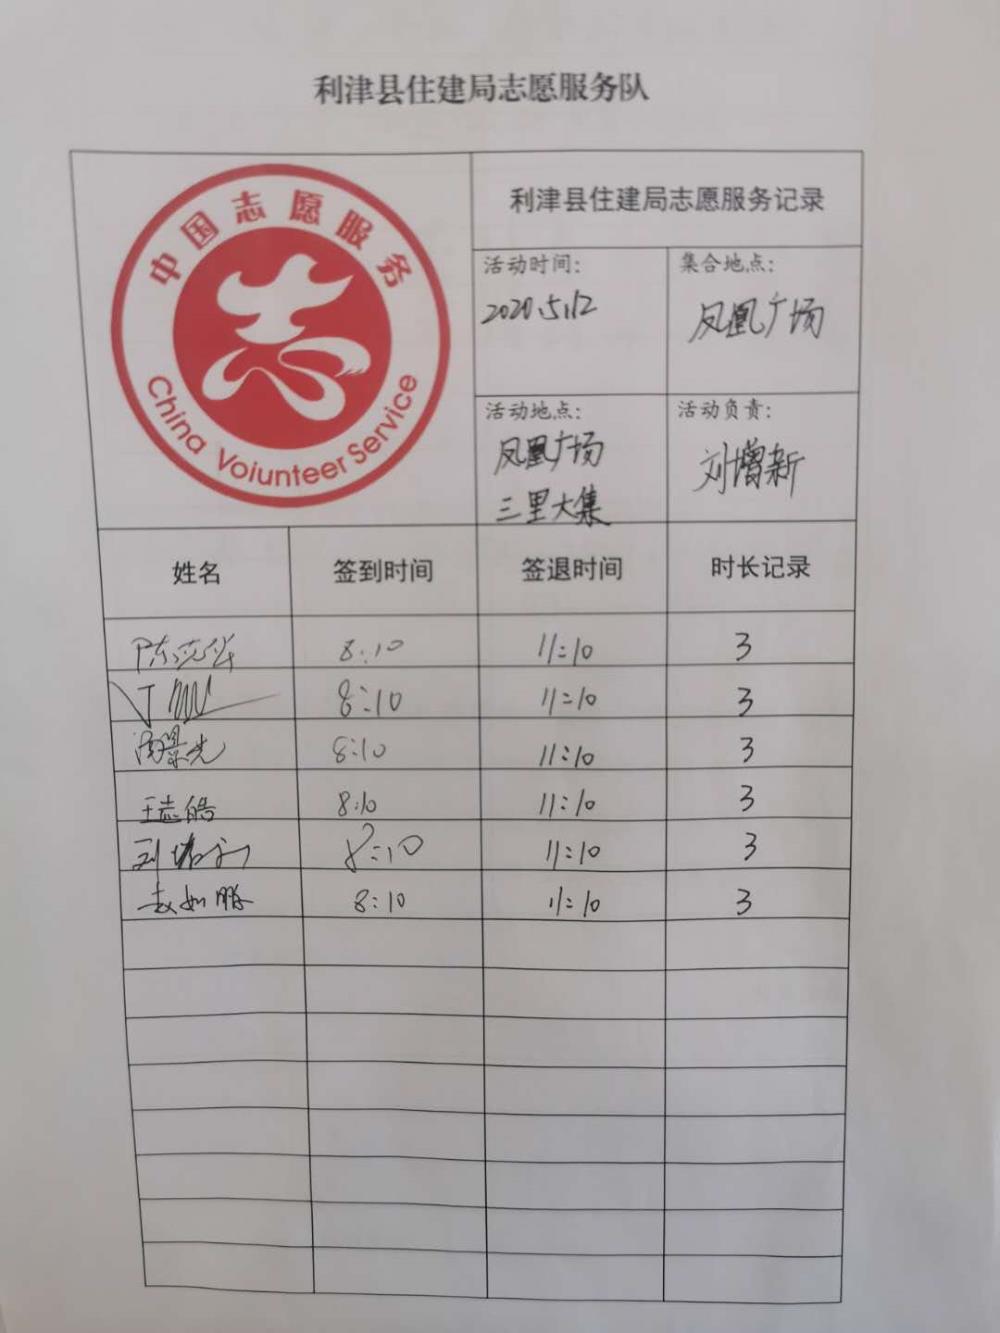 利津县住建局志愿服务队
中国志愿服务
China Voiunteer Service
利津县住建局志愿服务记录
活动时间:
2020.5.12
集合地点:
凤凰广场
活动地点:
凤凰广场
三里大集
活动负责:
刘增新
姓名 签到时间 签退时间 时长记录
8:10 11:10 3
8:10 11:10 3
8:10 11:10 3
王志皓 8:10 11:10 3
刘增新 8:10 11:10 3
赵如鹏 8:10 11:10 3